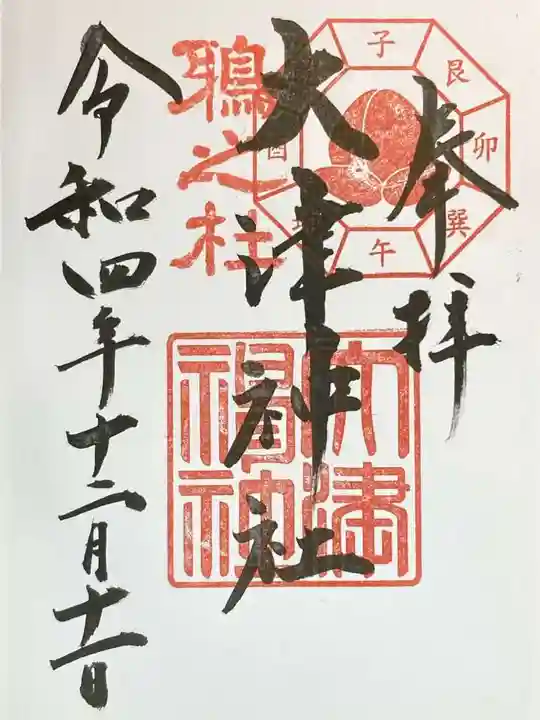 奉拝
大津神社
令和四年十二月十一日
鴉之社
子
艮
卯
巽
午
酉
大津
神